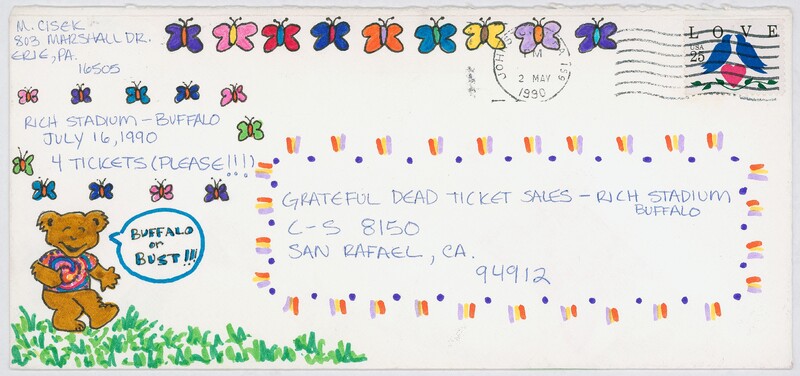 M. CISEK
803 MARSHALL DR.
ERIE, PA.
16505
RICH STADIUM – BUFFALO
JULY 16, 1990
4 TICKETS (PLEASE!!!)
BUFFALO
or
BUST!!!
GRATEFUL DEAD TICKET SALES – RICH STADIUM
BUFFALO
C-S 8150
SAN RAFAEL, CA.
94912
PM
2 MAY
1990
LOVE
USA
25